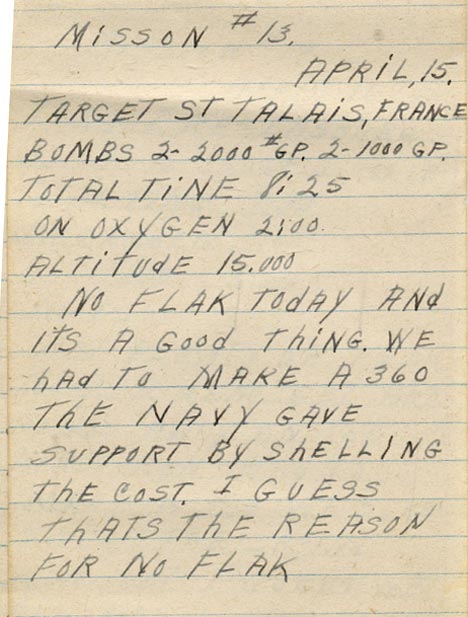 MISSON #13.
APRIL, 15.
TARGET ST TALAIS, FRANCE
BOMBS 2- 2000 #GP. 2-1000 GP.
TOTAL TINE 8:25
ON OXYGEN 2:00.
ALTITUDE 15.000
NO FLAK TODAY AND
ITS A GOOD THING. WE
HAD TO MAKE A 360
THE NAVY GAVE
SUPPORT BY SHELLING
THE COST. I GUESS
THATS THE REASON
FOR NO FLAK